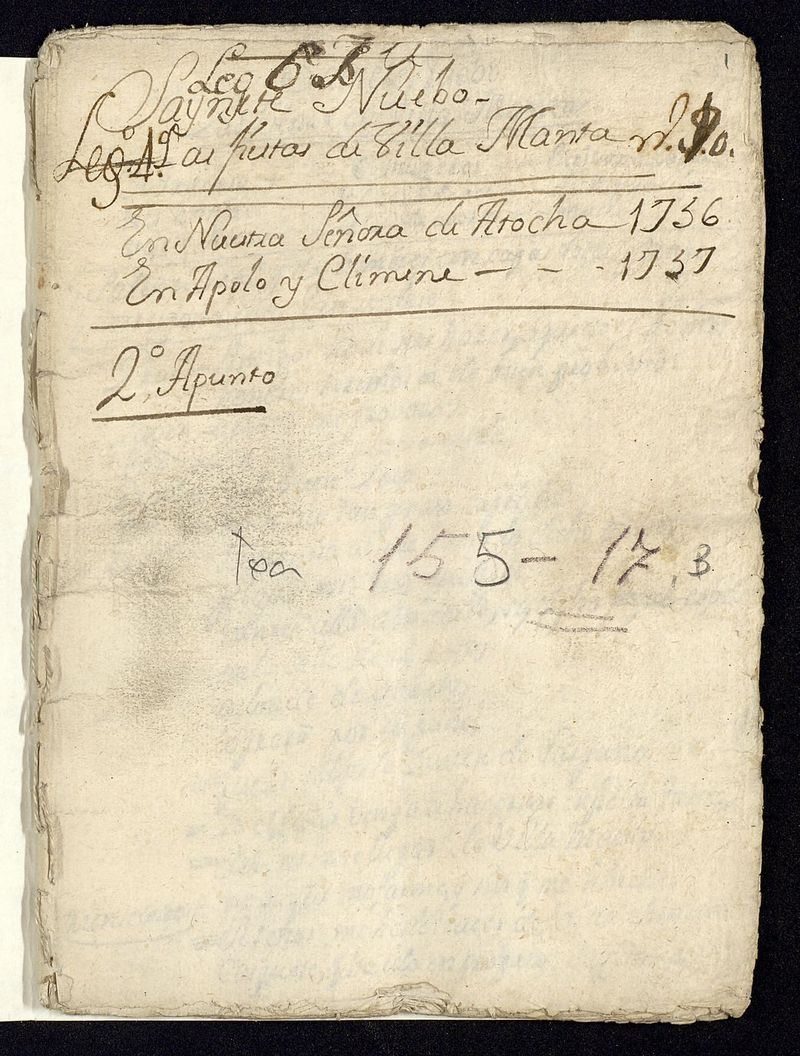 Leg 6.
Saynete Nuebo-
Leg.º 4.º as fiestas de Villa Manta
En Nuestra Señora de Atocha 1736
En Apolo y Climene - - - 1737
2.º Apunto
Tea 155-17, B
1